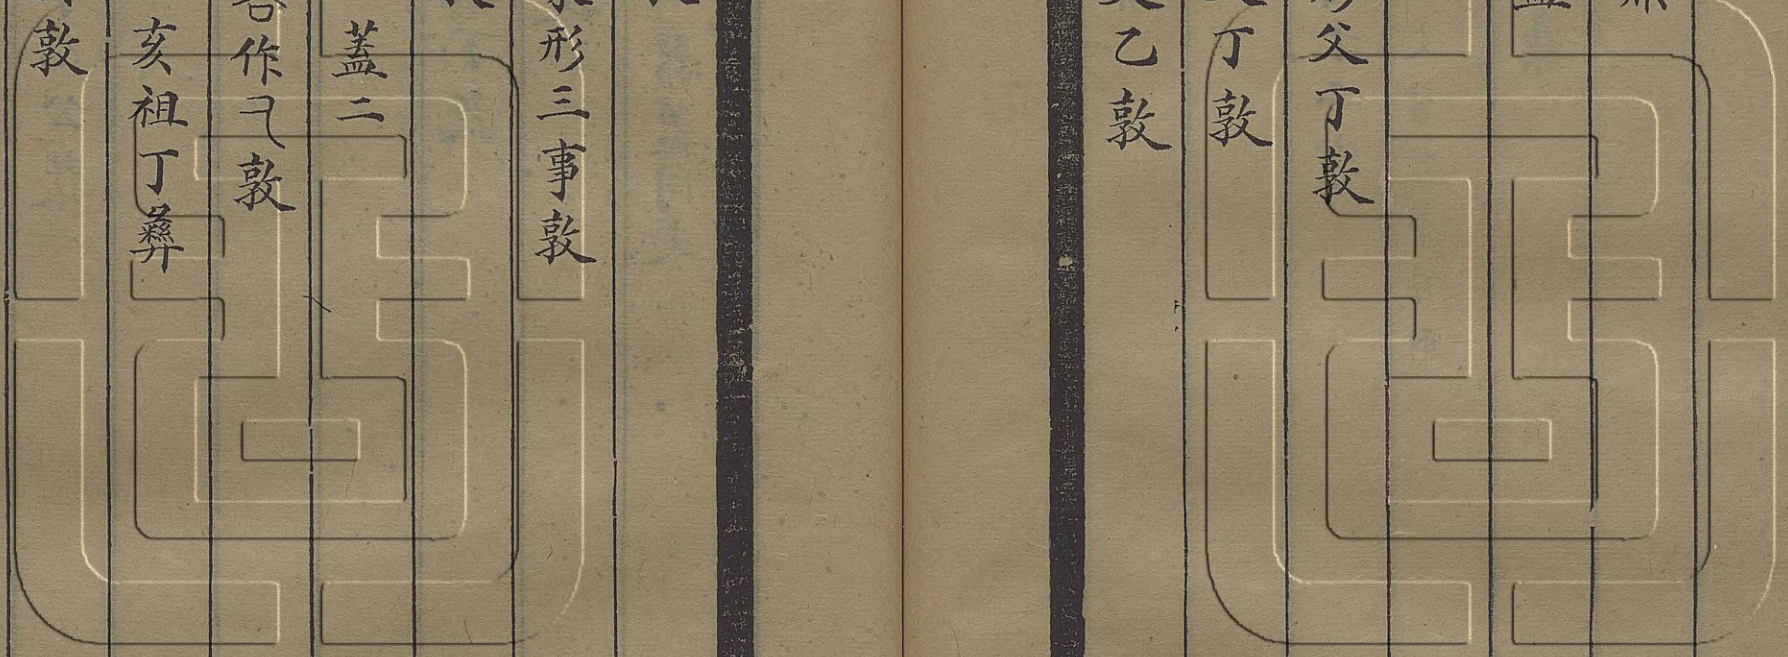 父丁敦
丁敦
乙敦
形三事敦
蓋二
作敦
亥祖丁彝
敦